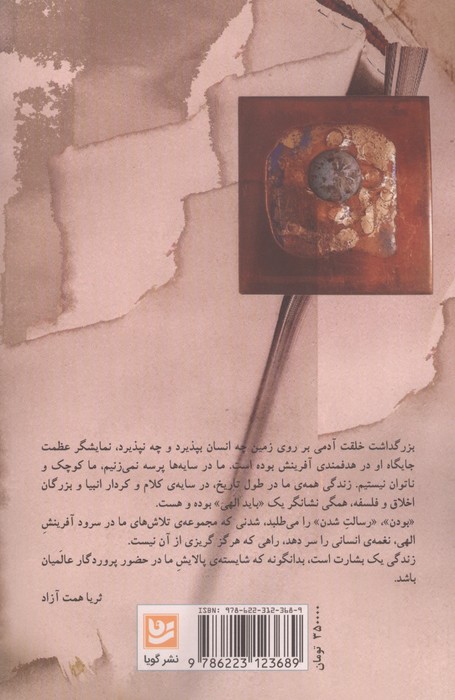 بزرگداشت خلقت آدمی بر روی زمین چه انسان بپذیرد و چه نپذیرد، نمایشگر عظمت
جایگاه او در هدفمندی آفرینش بوده است. ما در سایه‌ها پرسه نمی‌زنیم، ما کوچک و
ناتوان نیستیم. زندگی همه‌ی ما در طول تاریخ، در سایه‌ی کلام و کردار انبیا و بزرگان
اخلاق و فلسفه، همگی نشانگر یک «باید الهی» بوده و هست.
«بودن»، «رسالتِ شدن» را می‌طلبد، شدنی که مجموعه‌ی تلاش‌های ما در سرود آفرینشِ
الهی، نغمه‌ی انسانی را سر دهد، راهی که هرگز گریزی از آن نیست.
زندگی یک بشارت است، بدانگونه که شایسته‌ی پالایشِ ما در حضور پروردگار عالمیان
باشد.
ثریا همت آزاد
ISBN: 978-622-312-368-9
9 786223 123689
نشر گویا
۳۵۰۰۰۰ تومان